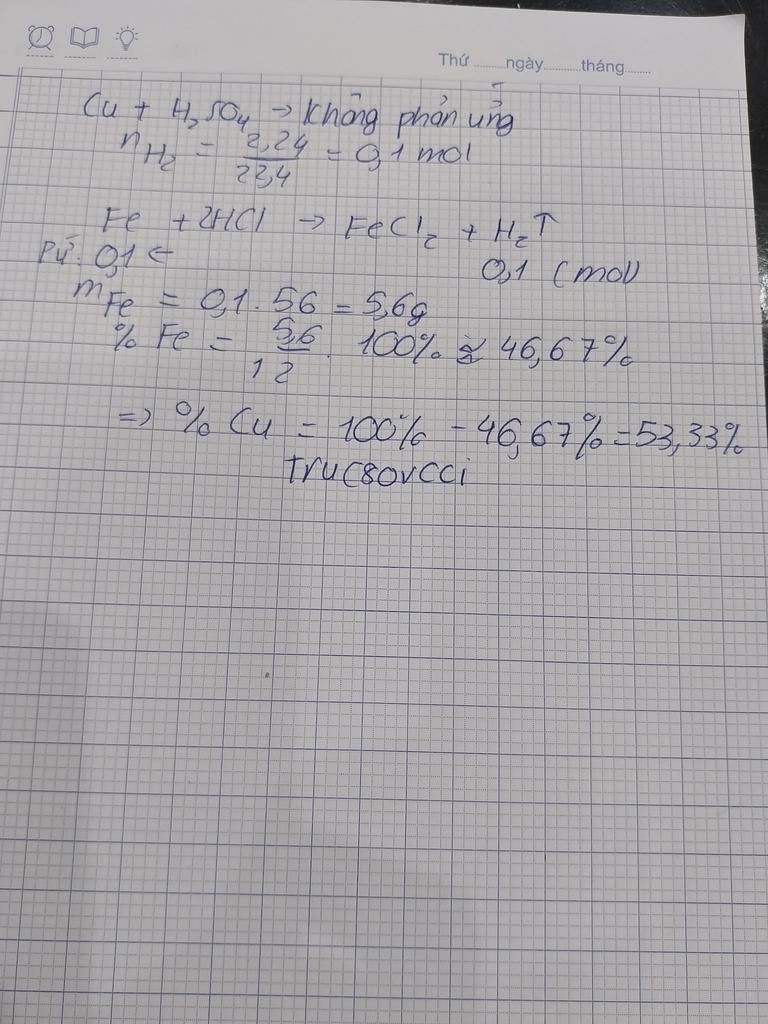 Thứ ........ngày.........tháng.......
Cu + H₂SO₄ → Không phản ứng
nH₂ = 2,24/22,4 = 0,1 mol
Fe + 2HCl → FeCl₂ + H₂↑
Pứ: 0,1 ← 0,1 (mol)
mFe = 0,1 . 56 = 5,6g
% Fe = 5,6/12 . 100% ≈ 46,67%
=> % Cu = 100% - 46,67% = 53,33%